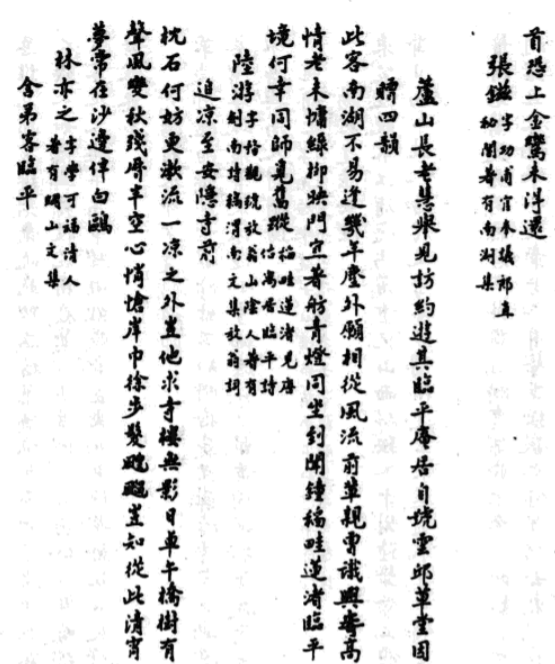 首恐上金鑾未得還
張鎡 字功甫官奉議郎直
秘閣著有南湖集
蘆山長老慧舉見訪約遊其臨平庵居自號雲邱草堂因
贈四韻
此客南湖不易逢幾年塵外願相從風流前輩親曾識興寄高
情老未慵綠柳映門宜著舫青燈同坐到聞鐘稻畦蓮渚臨平
境何幸同師覓舊蹤 稻畦蓮渚見唐
伯寓居臨平詩
陸游 字務觀號放翁山陰人著有
劍南詩稿渭南文集放翁詞
追凉至安隱寺前
枕石何妨更漱流一凉之外豈他求寺樓無影日卓午橋樹有
聲風變秋殘曆半空心悄愴岸巾徐步髮颼飀豈知從此清宵
夢常在沙邊伴白鷗
林亦之 字學可福清人
著有網山文集
舍弟客臨平